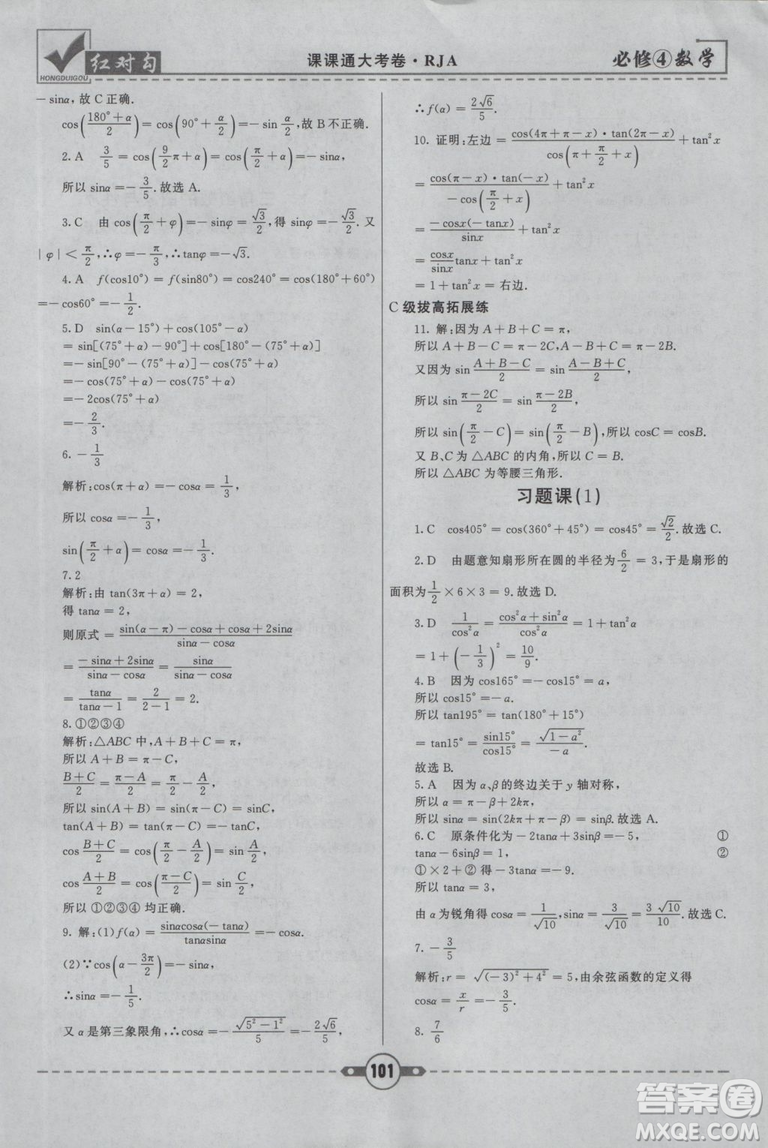 红对勾
HONGDUIGOU
课课通大考卷·RJA
必修④数学
-sinα,故C正确.
cos((180°+α)/2)=cos(90°+α/2)=-sin α/2,故B不正确.
2.A 3/5=cos(9/2π+α)=cos(π/2+α)=-sinα,
所以 sinα=-3/5.故选A.
3.C 由 cos(π/2+φ)=-sinφ=√3/2,得 sinφ=-√3/2.又
|φ|<π/2,∴φ=-π/3,∴tanφ=-√3.
4.A f(cos10°)=f(sin80°)=cos240°=cos(180°+60°)
=-cos60°=-1/2.
5.D sin(α-15°)+cos(105°-α)
=sin[(75°+α)-90°]+cos[180°-(75°+α)]
=-sin[90°-(75°+α)]-cos(75°+α)
=-cos(75°+α)-cos(75°+α)
=-2cos(75°+α)
=-2/3.
6.-1/3
解析:cos(π+α)=-cosα=1/3,
所以 cosα=-1/3.
sin(π/2+α)=cosα=-1/3.
7.2
解析:由 tan(3π+α)=2,
得 tanα=2,
则原式=(sin(α-π)-cosα+cosα+2sinα)/(sinα-cosα)
=(-sinα+2sinα)/(sinα-cosα)=sinα/(sinα-cosα)
=tanα/(tanα-1)=2/(2-1)=2.
8.①②③④
解析:△ABC 中,A+B+C=π,
(B+C)/2=(π-A)/2=π/2-A/2.
所以 sin(A+B)=sin(π-C)=sinC,
tan(A+B)=tan(π-C)=-tanC,
cos (B+C)/2=cos(π/2-A/2)=sin A/2,
cos (A+B)/2=cos((π-C)/2)=sin C/2,
所以①②③④均正确.
9.解:(1)f(α)=sinαcosα(-tanα)/(tanαsinα)=-cosα.
(2)∵cos(α-3π/2)=-sinα=1/5,
∴sinα=-1/5.
又 α 是第三象限角,∴cosα=-√(5²-1²)/5=-2√6/5,
∴f(α)=2√6/5.
10.证明:左边=cos(4π+π-x)·tan(2π-x)/cos(π+π/2+x)+tan²x
=cos(π-x)·tan(-x)/(-cos(π/2+x))+tan²x
=-cosx(-tanx)/sinx+tan²x
=(cosx/sinx)·tanx+tan²x
=1+tan²x=右边.
C级拔高拓展练
11.解:因为A+B+C=π,
所以 A+B-C=π-2C,A-B+C=π-2B.
又因为 sin (A+B-C)/2=sin (A-B+C)/2,
所以 sin (π-2C)/2=sin (π-2B)/2.
所以 sin(π/2-C)=sin(π/2-B),所以 cosC=cosB.
又 B、C 为△ABC 的内角,所以 C=B.
所以△ABC 为等腰三角形.
习题课(1)
1.C cos405°=cos(360°+45°)=cos45°=√2/2.故选C.
2.D 由题意知扇形所在圆的半径为 6/2=3,于是扇形的
面积为 1/2×6×3=9.故选D.
3.D 1/cos²α=(cos²α+sin²α)/cos²α=1+tan²α
=1+(-1/3)²=10/9.
4.B 因为 cos165°=-cos15°=a,
所以 cos15°=-a.
所以 tan195°=tan(180°+15°)
=tan15°=sin15°/cos15°=√(1-a²)/(-a).
故选B.
5.A 因为 α、β 的终边关于 y 轴对称,
所以 α=π-β+2kπ,
所以 sinα=sin(2kπ+π-β)=sinβ.故选A.
6.C 原条件化为-2tanα+3sinβ=-5, ①
tanα-6sinβ=1, ②
①×2+②得-3tanα=-9.
所以 tanα=3,
由 α 为锐角得 cosα=1/√10,sinα=3/√10=3√10/10.
7.-3/5
解析:r=√((-3)²+4²)=5,由余弦函数的定义得
cosα=x/r=-3/5.
8.7/6
101
答案圈
MXQE.COM